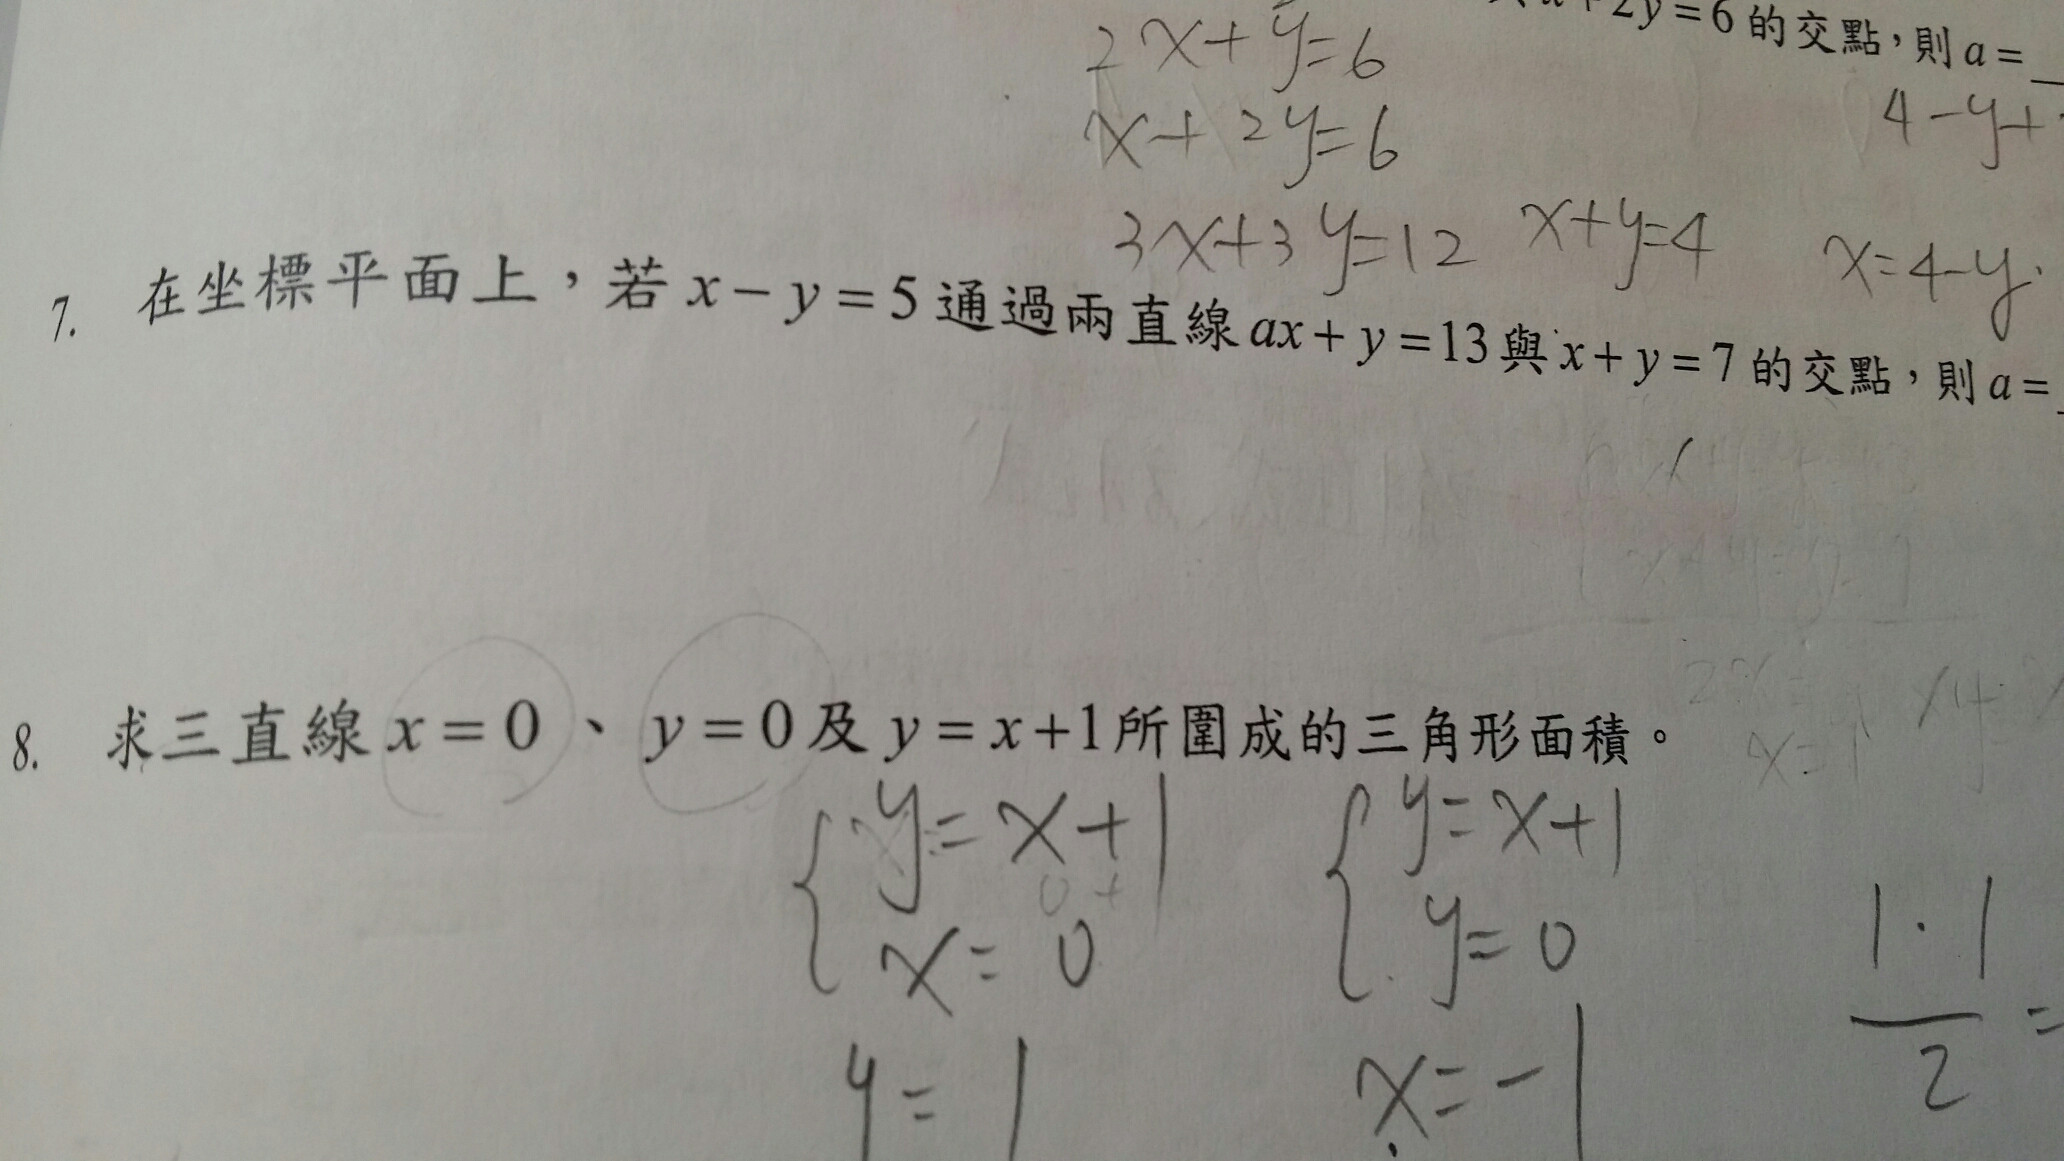 +2y=6的交點，則a=
2x+y=6
x+2y=6
4-y+
3x+3y=12 x+y=4 x=4-y
7. 在坐標平面上，若x-y=5通過兩直線ax+y=13與x+y=7的交點，則a=
8. 求三直線x=0、y=0及y=x+1所圍成的三角形面積。
x=1
y=x+1 y=x+1
0+
x=0 y=0
1·1
2 =
y=1 x=-1